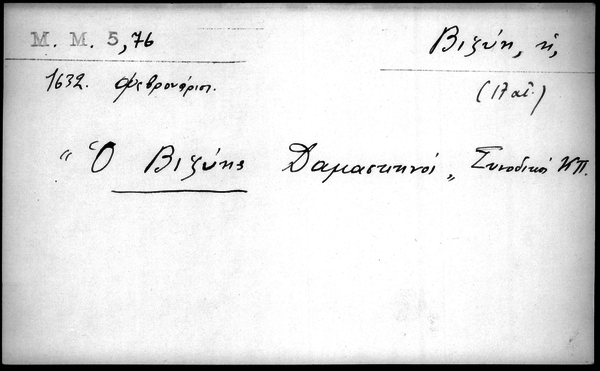 M. M. 5,76
Βιζύη, ἡ,
1632. Φεβρουάριος.
(17 αἰ.)
“Ὁ Βιζύης Δαμασκηνός„ Συνοδικὸν ΚΠ.